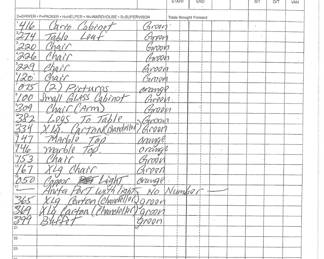 START END S/T O/T VAN
D=DRIVER P=PACKER H=HELPER W=WAREHOUSE S=SUPERVISOR Totals Brought Forward
416 Curio Cabinet Green
274 Table Leaf Green
220 Chair Green
226 Chair Green
229 Chair Green
120 Chair Green
075 (2) Pictures orange
100 Small Glass Cabinet Green
209 Chair (Arm) Green
382 Legs To Table Green
334 Xlg. Carton (Chandelier) Green
147 Marble Top orange
146 marble Top orange
153 Chair Green
167 Xlg Chair Green
050 Light orange
with light, No Number
365 Xlg Carton (Chandelier) green
369 Xlg Carton (Chandelier) green
299 Buffet green